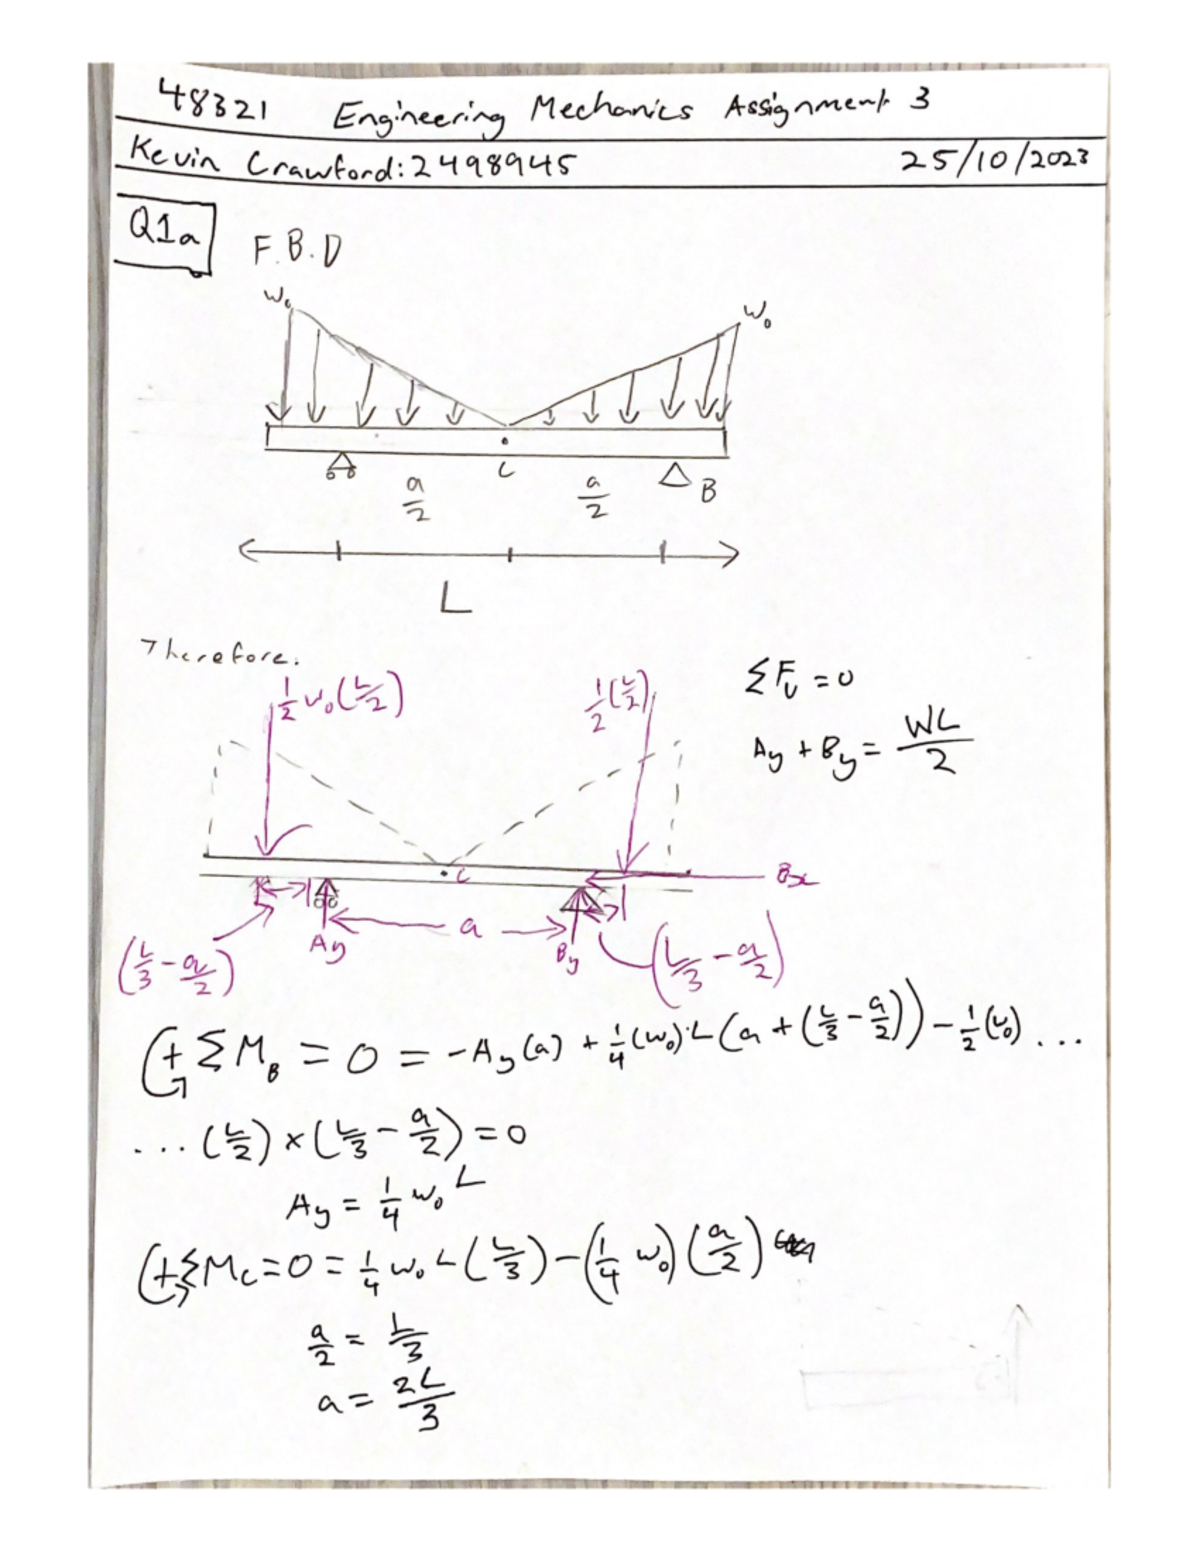 48321 Engineering Mechanics Assignment 3
Kevin Crawford: 2498945 25/10/2023
Q1a
F.B.D
w₀ w₀
C B
a/2 a/2
L
Therefore.
1/2 w₀(L/2) 1/2(L/2) ΣFᵥ = 0
Ay + By = WL/2
C Bx
Ay a By
(L/3 - a/2) (L/3 - a/2)
(+ ΣM_B = 0 = -Ay(a) + 1/4(w₀)·L(a + (L/3 - a/2)) - 1/2(w₀) ...
... (L/2) × (L/3 - a/2) = 0
Ay = 1/4 w₀ L
(+ ΣM_C = 0 = 1/4 w₀ L(L/3) - (1/4 w₀)(a/2)
a/2 = L/3
a = 2L/3